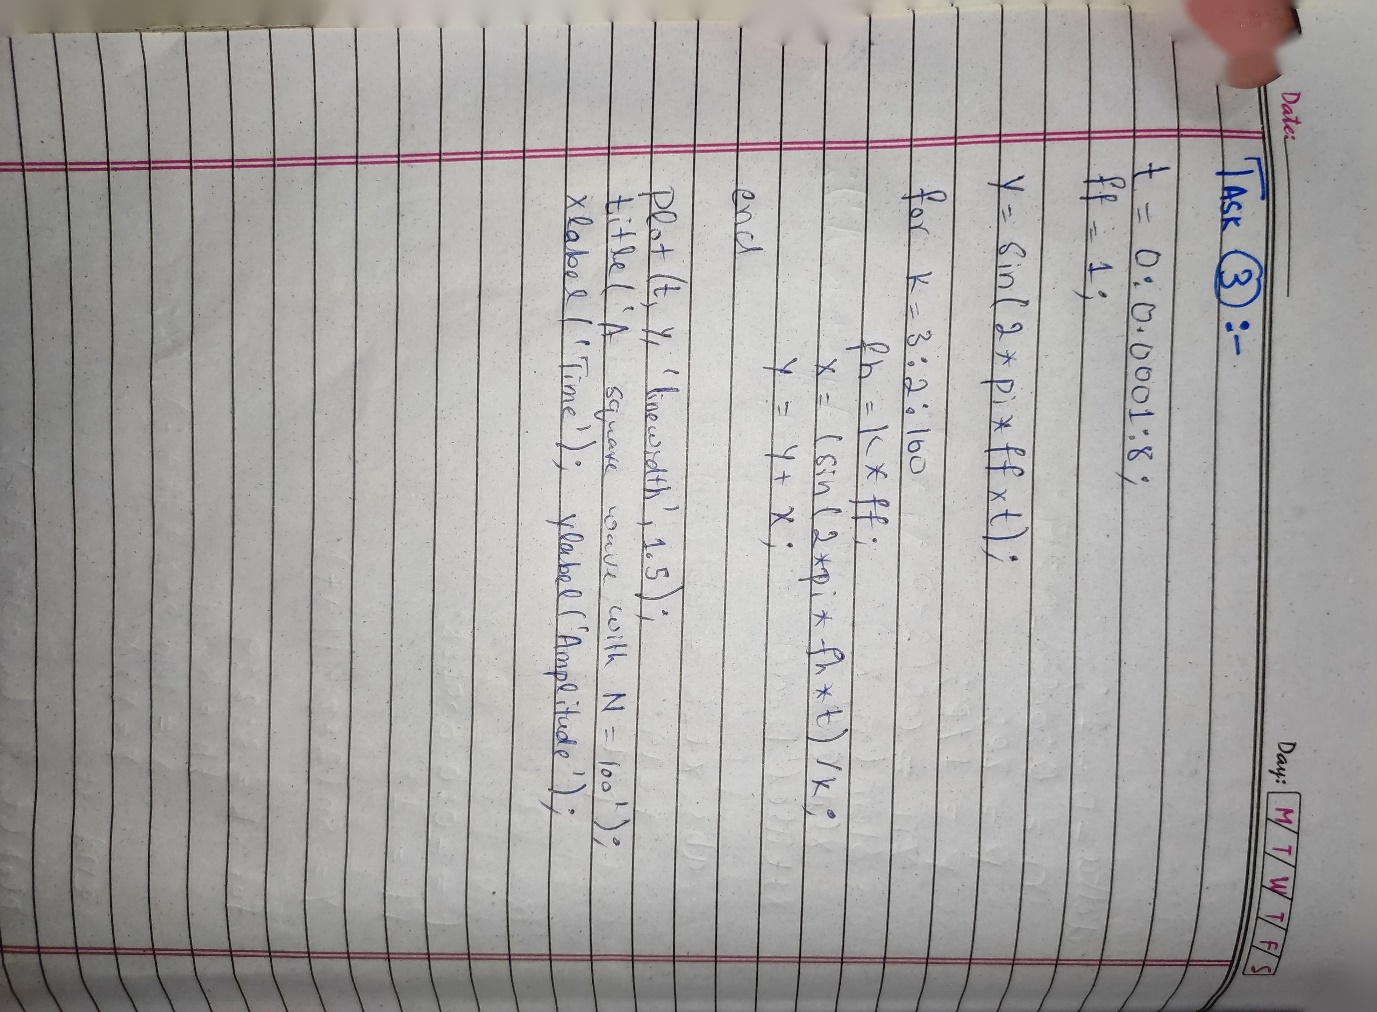 Date:
Day: M T W T F S
TASK (3) :-
t = 0:0.0001:8;
ff = 1;
y = sin(2*pi*ff*t);
for k = 3:2:100
fh = k*ff;
x = (sin(2*pi*fh*t)/k;
y = y+x;
end
plot(t, y, 'linewidth', 1.5);
title('A square wave with N = 100');
xlabel('Time'); ylabel('Amplitude');